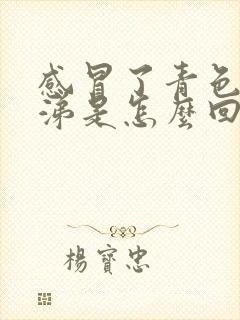 感冒了青色
涕是怎麼回
楊寶忠